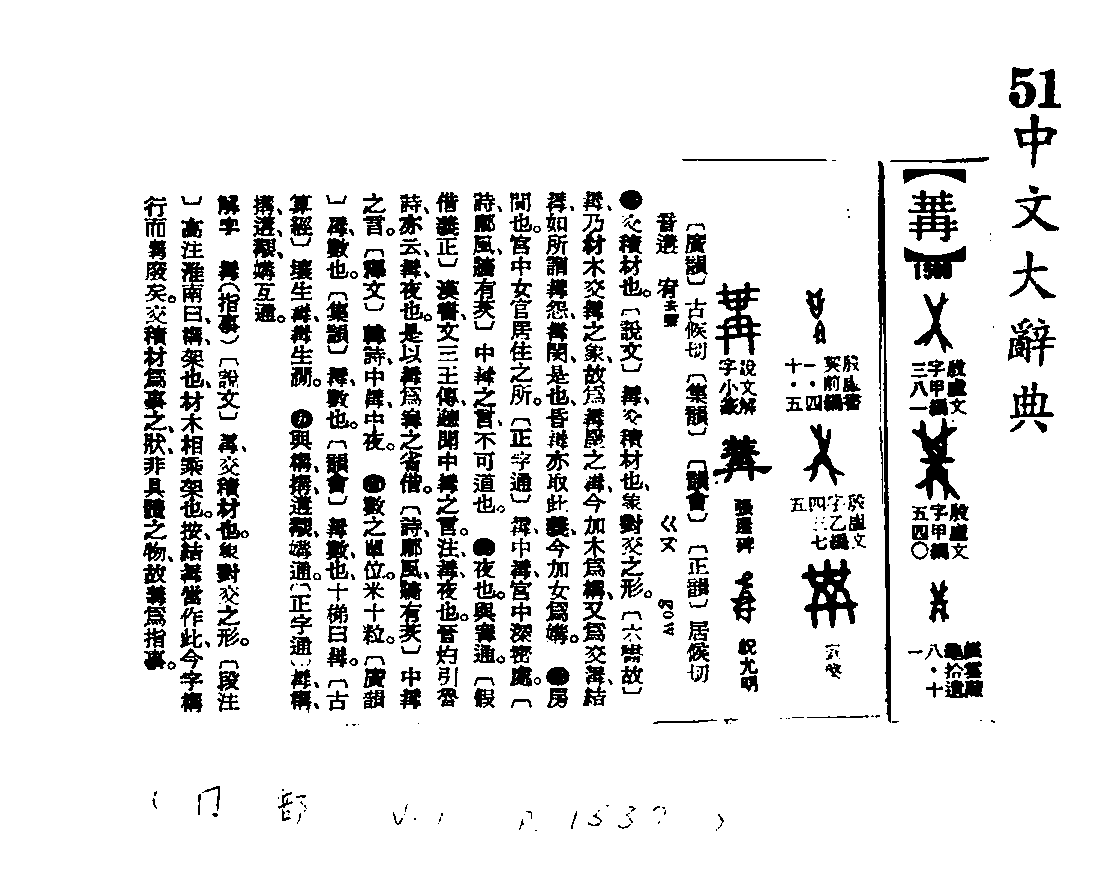 51中文大辭典
【冓】
殷虛文字甲編三八一
殷虛文字甲編五四〇
鐵雲藏龜拾遺八・十一
殷虛書契前編一・四十・五
殷虛文字乙編四三七五
說文解字小篆
張遷碑
祝允明
〔廣韻〕古候切〔集韻〕〔韻會〕〔正韻〕居候切
音遘 宥去聲 ㄍㄡ
交積材也。〔說文〕冓、交積材也、象對交之形。〔六書故〕
冓、乃材木交冓之象、故爲冓屋之冓、今加木爲構、又爲交冓結
冓、如所謂冓怨冓閔是也、皆冓亦取此義、今加女爲媾。房
間也。宮中女官居住之所。〔正字通〕冓、中冓、宮中深密處。〔
詩鄘風、牆有茨〕中冓之言、不可道也。夜也。與篝通。〔假
借義正〕漢書文三王傳、聽聞中冓之言、注、冓、夜也。晉灼引魯
詩、亦云冓、夜也。是以冓爲篝之省借。〔詩鄘風、牆有茨〕中冓
之言。〔釋文〕韓詩、中冓、中夜。數之單位。米十粒。〔廣韻
〕冓、數也。〔集韻〕冓、數也。〔韻會〕冓、數也、十梯曰冓。〔古
算經〕壤生冓、冓生澗。與構、搆、遘、覯、媾通。〔正字通〕冓、構、
搆、遘、覯、媾互通。
解字 冓〔指事〕〔說文〕冓、交積材也。象對交之形。〔段注
〕高注淮南曰、構、架也、材木相乘架也。按、結冓當作此、今字構
行而冓廢矣。交積材爲事之狀、非具體之物、故冓爲指事。
(冂 部 V.1 P.1537)